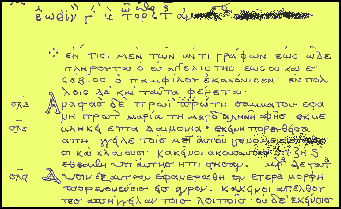 ἔν τισι μὲν τῶν ἀντιγράφων ἕως ὧδε
πληροῦται ὁ εὐαγγελιστής ἕως οὗ καὶ εὐ
σέβιος ὁ παμφίλου ἐκανόνισεν ἐν πολ
λοῖς δὲ καὶ ταῦτα φέρεται
Ἀναστὰς δὲ πρωῒ πρώτη σαββάτου ἐφά
νη πρῶτον μαρία τῆ μαγδαληνῆ ἀφ' ἧς ἐκβε
βλήκει ἑπτὰ δαιμόνια ἐκείνη πορευθεῖσα
ἀπήγγειλε τοῖς μετ' αὐτοῦ γενομένοις
σι καὶ κλαίουσι κἀκεῖνοι ἀκούσαντες ὅτι ζῆ
ἐθεάθη ὑπ' αὐτῆς ἠπίστησαν μετὰ δὲ ταῦτα
δυσὶν ἐξ αὐτῶν ἐφανερώθη ἐν ἑτέρα μορφῆ
πορευομένοις εἰς ἀγρόν κἀκεῖνοι ἀπελθόν
τες ἀπήγγειλαν τοῖς λοιποῖς οὐδὲ ἐκείνοις